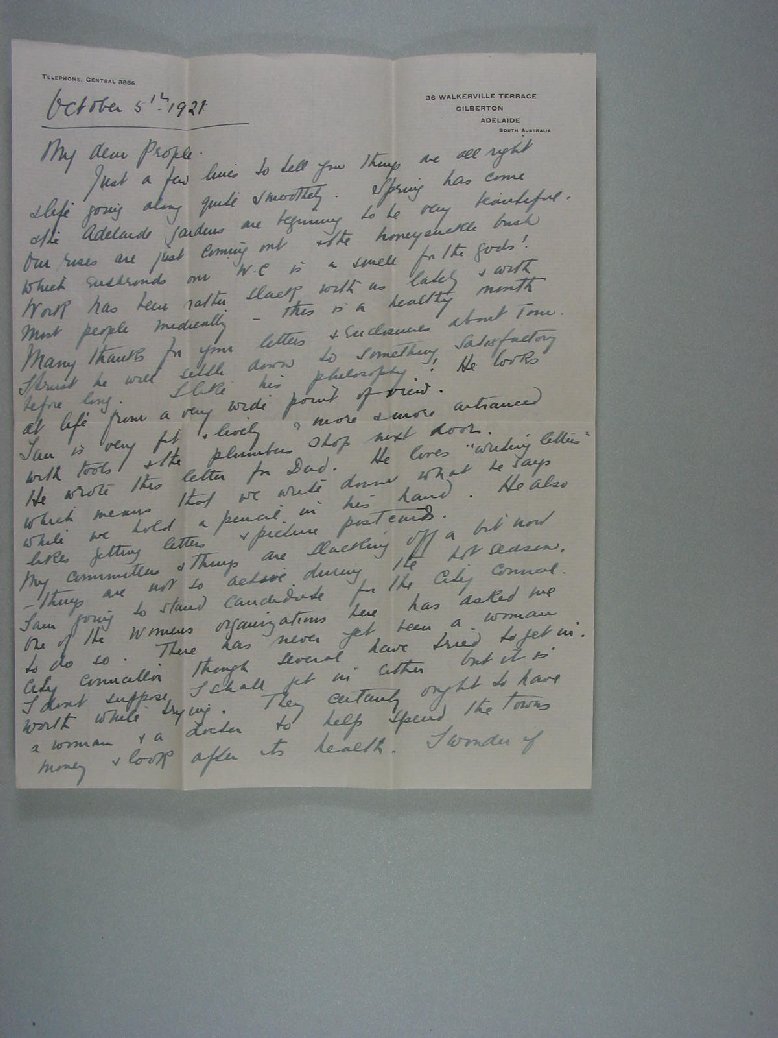 TELEPHONE, CENTRAL 3886.
36 WALKERVILLE TERRACE
GILBERTON
ADELAIDE
SOUTH AUSTRALIA
October 5th 1921
My dear People.
Just a few lines to tell you things are all right
& life going along quite smoothly. Spring has come
& the Adelaide gardens are beginning to be very beautiful.
Our roses are just coming out & the honeysuckle bush
which surrounds our W.C is a smell for the gods!
Work has been rather slack with us lately & with
most people medically - this is a healthy month
Many thanks for your letters & enclosures about Tom.
I trust he will settle down to something satisfactory
before long. I like his philosophy! He looks
at life from a very wide point of view.
Ian is very fit & lively & more & more entranced
with tools & the plumbers shop next door.
He wrote this letter for Dad. He loves "writing letters"
which means that we write down what he says
while we hold a pencil in his hand. He also
likes getting letters & picture postcards.
My committees & things are slacking off a bit now
- things are not so active during the hot season.
I am going to stand candidate for the City Council.
One of the Womens organizations here has asked me
to do so. There has never yet been a woman
City Councillor though several have tried to get in.
I dont suppose I shall get in either but it is
worth while trying. They certainly ought to have
a woman & a doctor to help spend the towns
money & look after its health. I wonder if